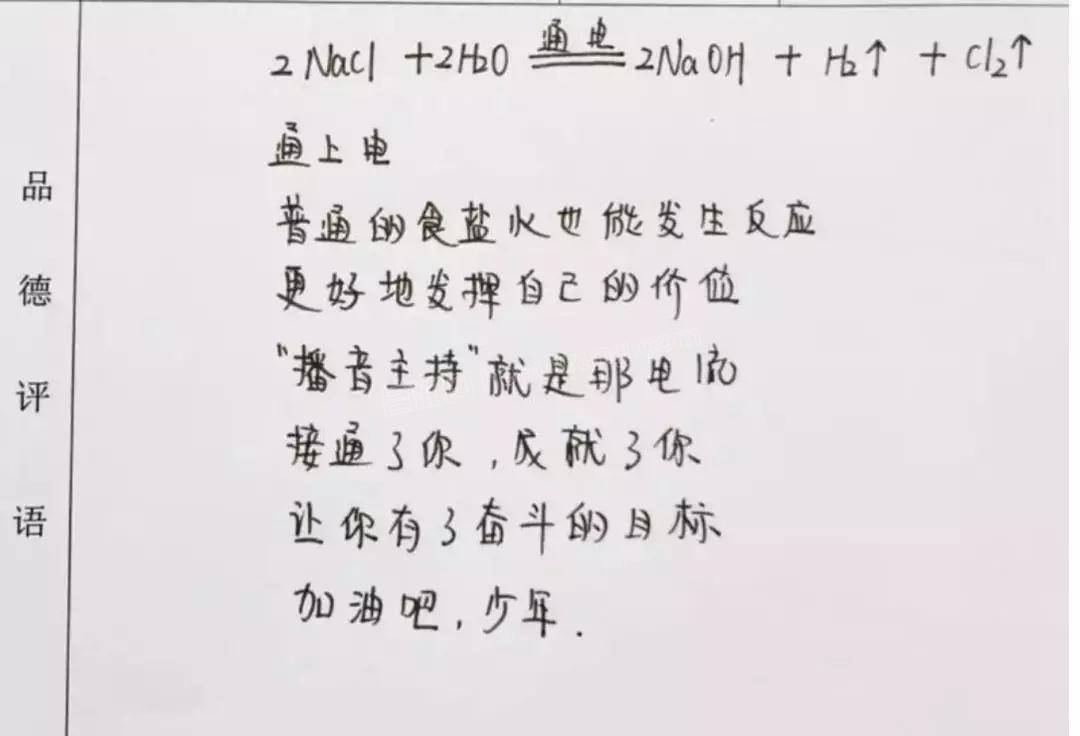 品德评语
2NaCl + 2H₂O 通电 ═══ 2NaOH + H₂↑ + Cl₂↑
通上电
普通的食盐水也能发生反应
更好地发挥自己的价值
“播音主持”就是那电流
接通了你，成就了你
让你有了奋斗的目标
加油吧，少年.